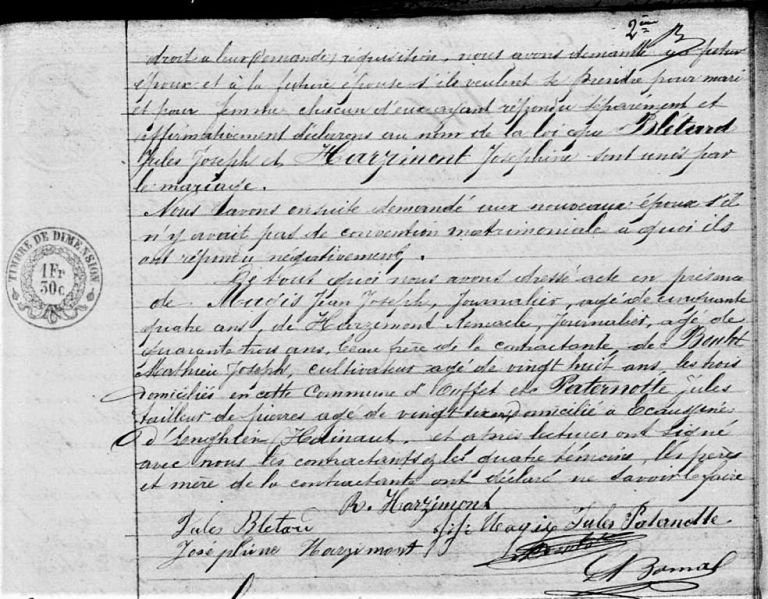 2me B
droit à leur demande, réquisition, nous avons demandé au futur
époux et à la future épouse s'ils veulent se prendre pour mari
et pour femme chacun d'eux ayant répondu séparément et
affirmativement déclarons au nom de la loi que Blétard
Jules Joseph et Harzimont Joséphine sont unis par
le mariage.
Nous avons ensuite demandé aux nouveaux époux s'il
n'y avait pas de convention matrimoniale à quoi ils
ont répondu négativement.
De tout quoi nous avons dressé acte en présence
de Magis Jean Joseph, Journalier, agé de cinquante
quatre ans, de Harzimont Remacle, Journalier, agé de
quarante trois ans, beau frère de la contractante de
Mathieu Joseph, cultivateur agé de vingt huit ans, les trois
domiciliés en cette Commune d'Ouffet et de Paternotte Jules
tailleur de pierres agé de vingt domicilié à Ecaussines
d'Enghien (Hainaut, et après lecture ont signé
avec nous les contractants & les quatre témoins, les père
et mère de la contractante ont déclaré ne savoir le faire
R. Harzimont
Jules Bletard J. J. Magis Jules Paternotte
Joséphine Harzimont
Bomal
TIMBRE DE DIMENSION
1 Fr
30 c.